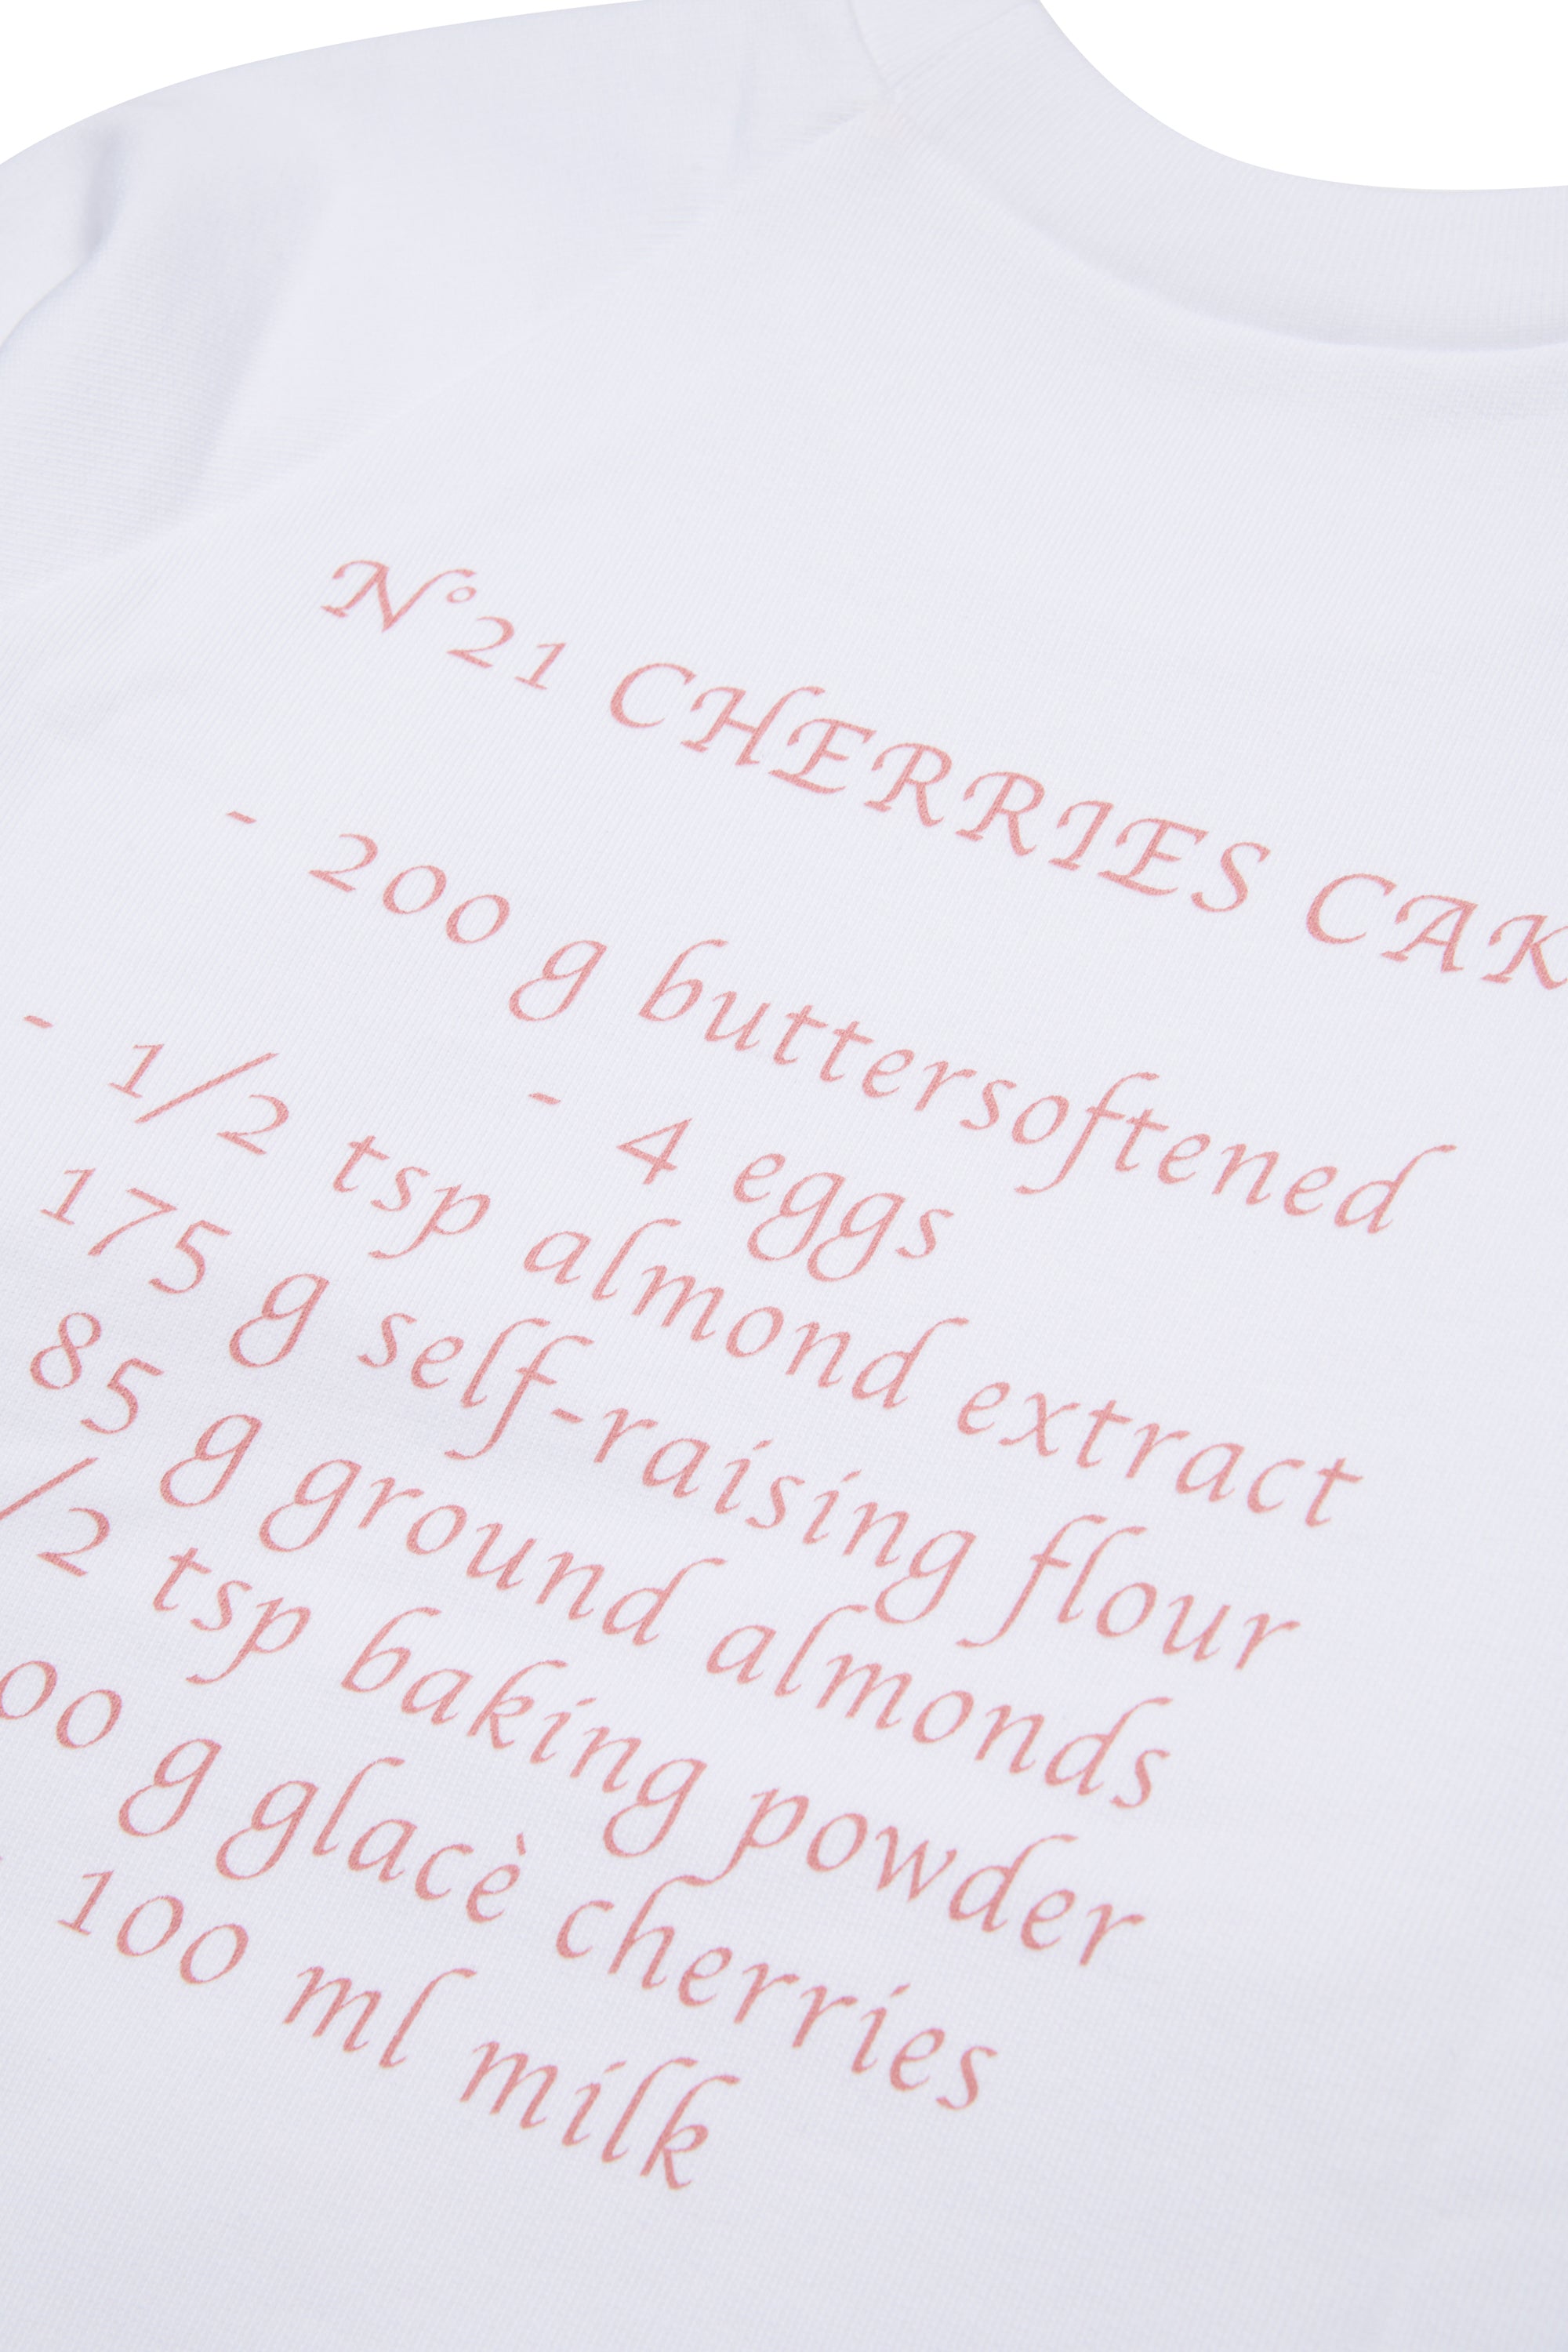 N°21 CHERRIES CAK
- 200 g buttersoftened
- 4 eggs
- 1/2 tsp almond extract
175 g self-raising flour
85 g ground almonds
/2 tsp baking powder
00 g glacè cherries
100 ml milk